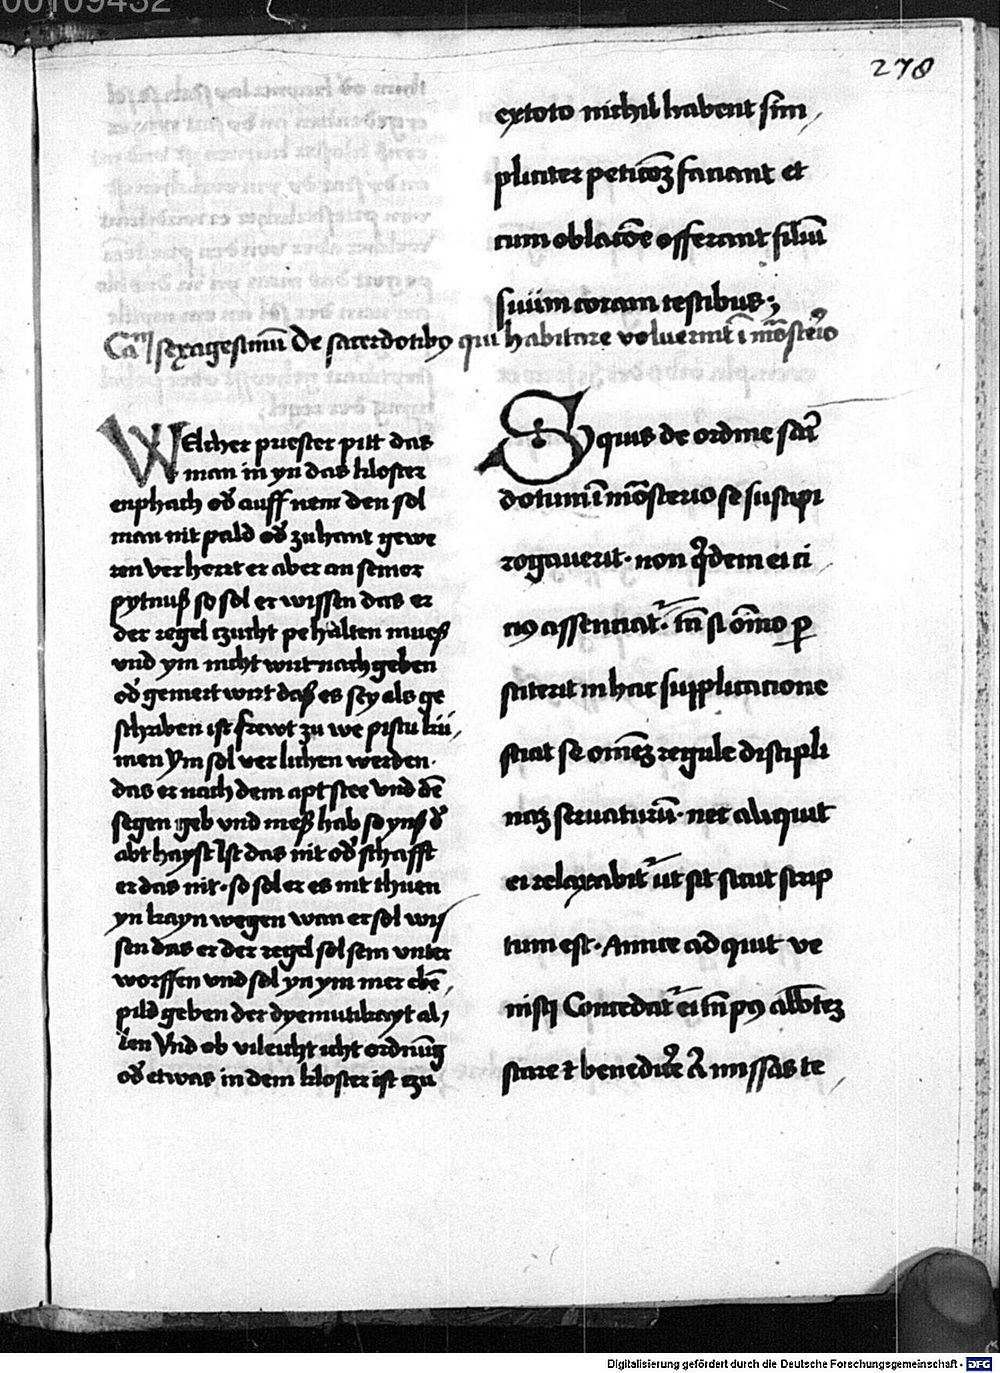 00109432
278
extoto nichil habent sim
pliciter peticõꝫ faciant et
cum oblacõe offerant filiũ
suum coram testibus;
Cam̃ sexagesimũ De sacerdotibꝯ qui habitare voluerint ĩ mõsterio
Welcher priester pitt das
man in yn das kloster
enphach od̃ auff nem den sol
man nit pald od̃ zuhant gewe
ren verhertt er aber an seiner
pytnuß so sol er wissen das er
der regel czucht pehalten mueß
vnd ym nicht wirt nachgeben
od̃ gemert wirt daß es sey als ge
schriben ist frewt zu we pistu kũ
men Ym sol verlichen werden.
das er nach dem apt stee vnd dẽ
segen geb vnd meß hab so ynß d̃
abt hayst Ist das nit od̃ schafft
er das nit. so sol er es nit thuen
yn kayn wegen wan er sol wis
sen das er der regel sol sein vnter
worffen vnd sol yn ym mer ebẽ
pild geben der dyemutikayt al
len Vnd ob vileicht icht ordnũg
od̃ etwas in dem kloster ist czu
Siquis de ordine sacer
dotum ĩ mõsterio se suscipi
rogauerit. non q̃dem ei ci
ciꝯ assenciat̃. tñ si om̃ino ꝑ
stiterit in hac supplicacione
sciat se om̃eꝫ regule discipli
naꝫ seruaturũ. nec aliquit
ei relaxabit̃ ut sit sicut scrip
tum est. Amice ad quit ve
nisti Concedat̃ ei tñ pꝯ abb̃teꝫ
stare et benedicẽ aũ missas te
Digitalisierung gefördert durch die Deutsche Forschungsgemeinschaft - DFG